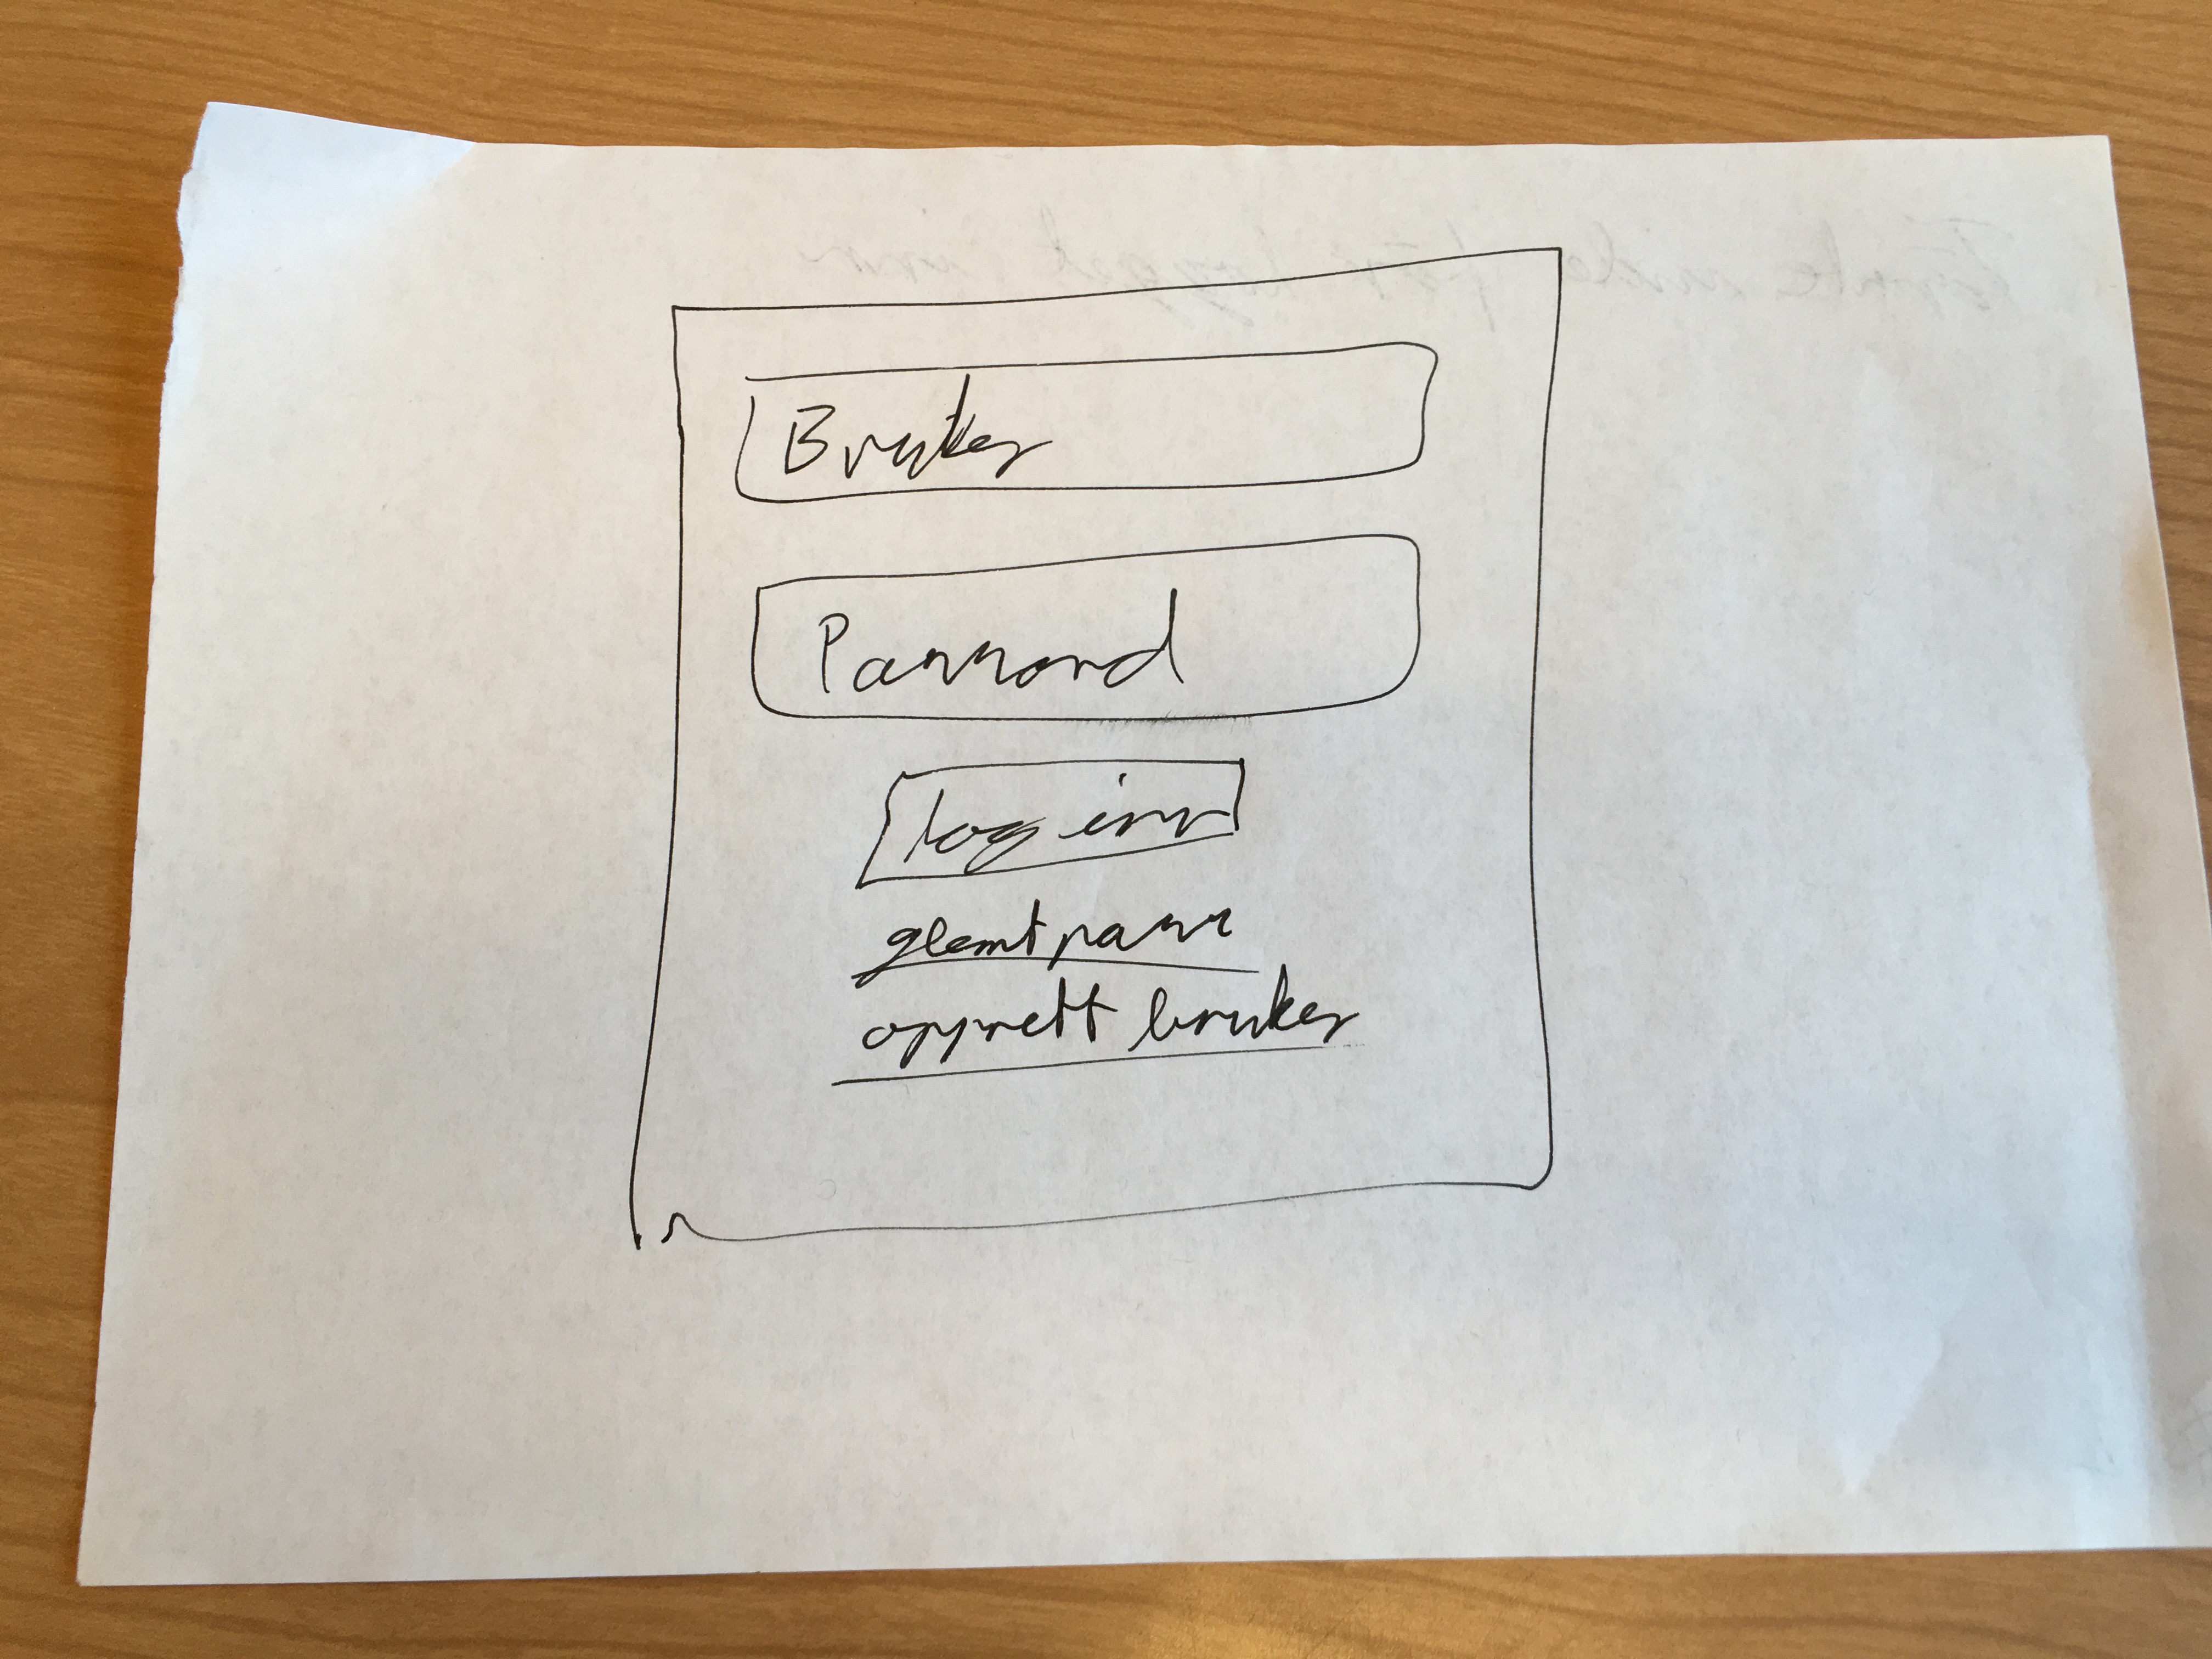 Bruker
Passord
Logg inn
glemt pass
opprett bruker